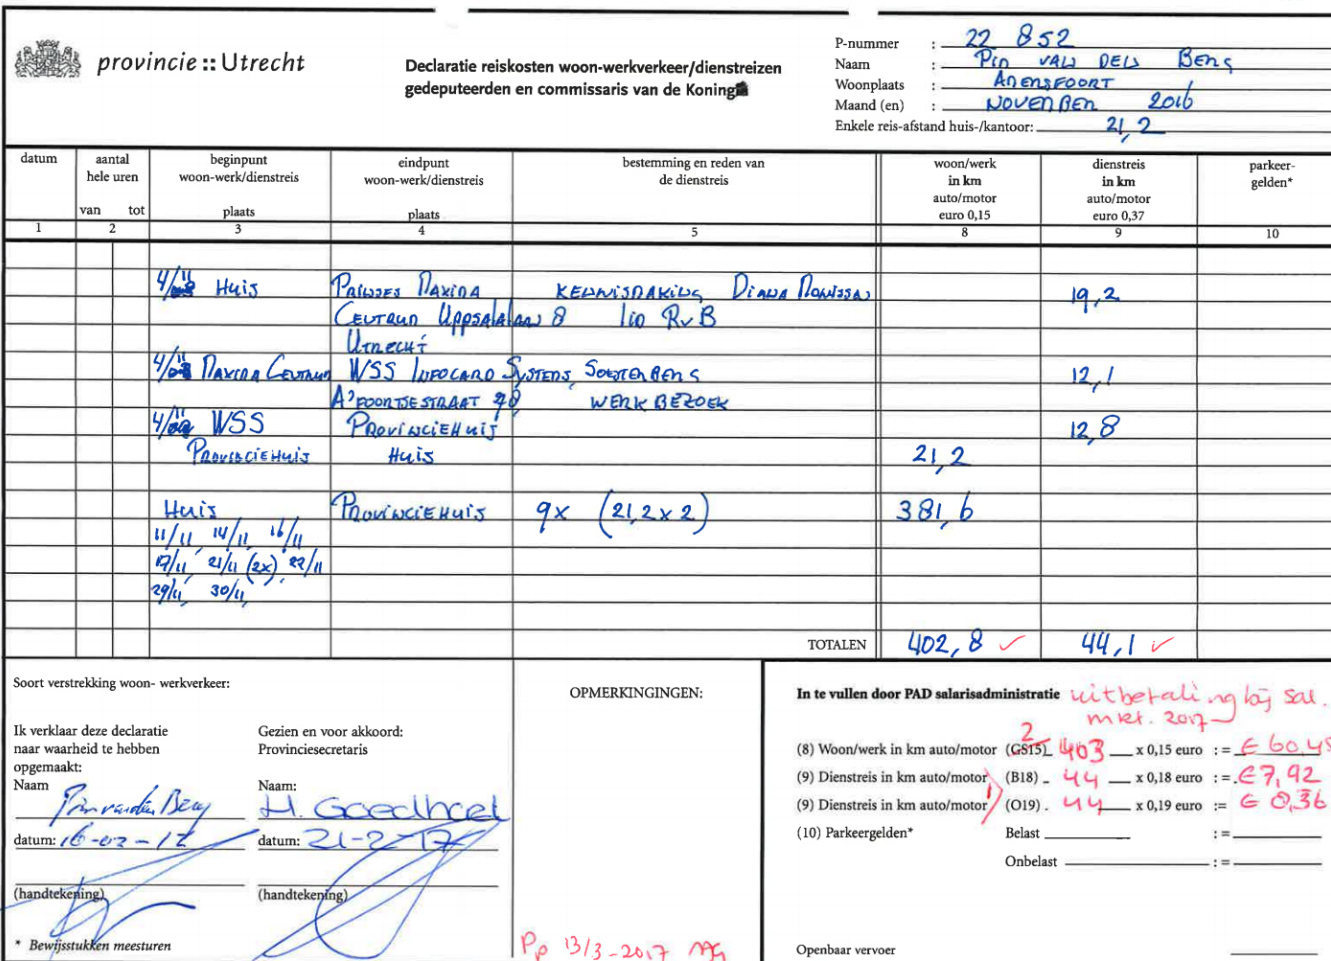 provincie :: Utrecht
Declaratie reiskosten woon-werkverkeer/dienstreizen
gedeputeerden en commissaris van de Koning
P-nummer : 22 852
Naam : Pim van den Berg
Woonplaats : Amersfoort
Maand (en) : November 2016
Enkele reis-afstand huis-/kantoor: 21,2
datum aantal hele uren van tot beginpunt woon-werk/dienstreis plaats eindpunt woon-werk/dienstreis plaats bestemming en reden van de dienstreis woon/werk in km auto/motor euro 0,15 dienstreis in km auto/motor euro 0,37 parkeer-gelden*
1 2 3 4 5 8 9 10
4/11 Huis Prinses Maxima Kennismaking Diana 19,2
Centrum Uppsalalaan 8 lid RvB
Utrecht
4/11 Maxima Centrum WSS Infocard Systems, Soesterberg 12,1
A'foortsestraat Werkbezoek
4/11 WSS Provinciehuis 12,8
Provinciehuis Huis 21,2
Huis Provinciehuis 9x (21,2 x 2) 381,6
11/11, 14/11, 16/11
17/11, 21/11 (2x), 22/11
29/11, 30/11,
TOTALEN 402,8 ✓ 44,1 ✓
Soort verstrekking woon- werkverkeer:
Ik verklaar deze declaratie
naar waarheid te hebben
opgemaakt:
Naam
Pim van den Berg
datum: 16-02-17
(handtekening)
* Bewijsstukken meesturen
Gezien en voor akkoord:
Provinciesecretaris
Naam:
H. Goedhart
datum: 21-2-17
(handtekening)
OPMERKINGINGEN:
Pp 13/3-2017
In te vullen door PAD salarisadministratie uitbetaling bij sal.
mrt. 2017
2
(8) Woon/werk in km auto/motor (GS15) 403 x 0,15 euro := € 60,45
(9) Dienstreis in km auto/motor (B18) 44 x 0,18 euro := € 7,92
(9) Dienstreis in km auto/motor (O19) 44 x 0,19 euro := € 8,36
(10) Parkeergelden* Belast :=
Onbelast :=
Openbaar vervoer